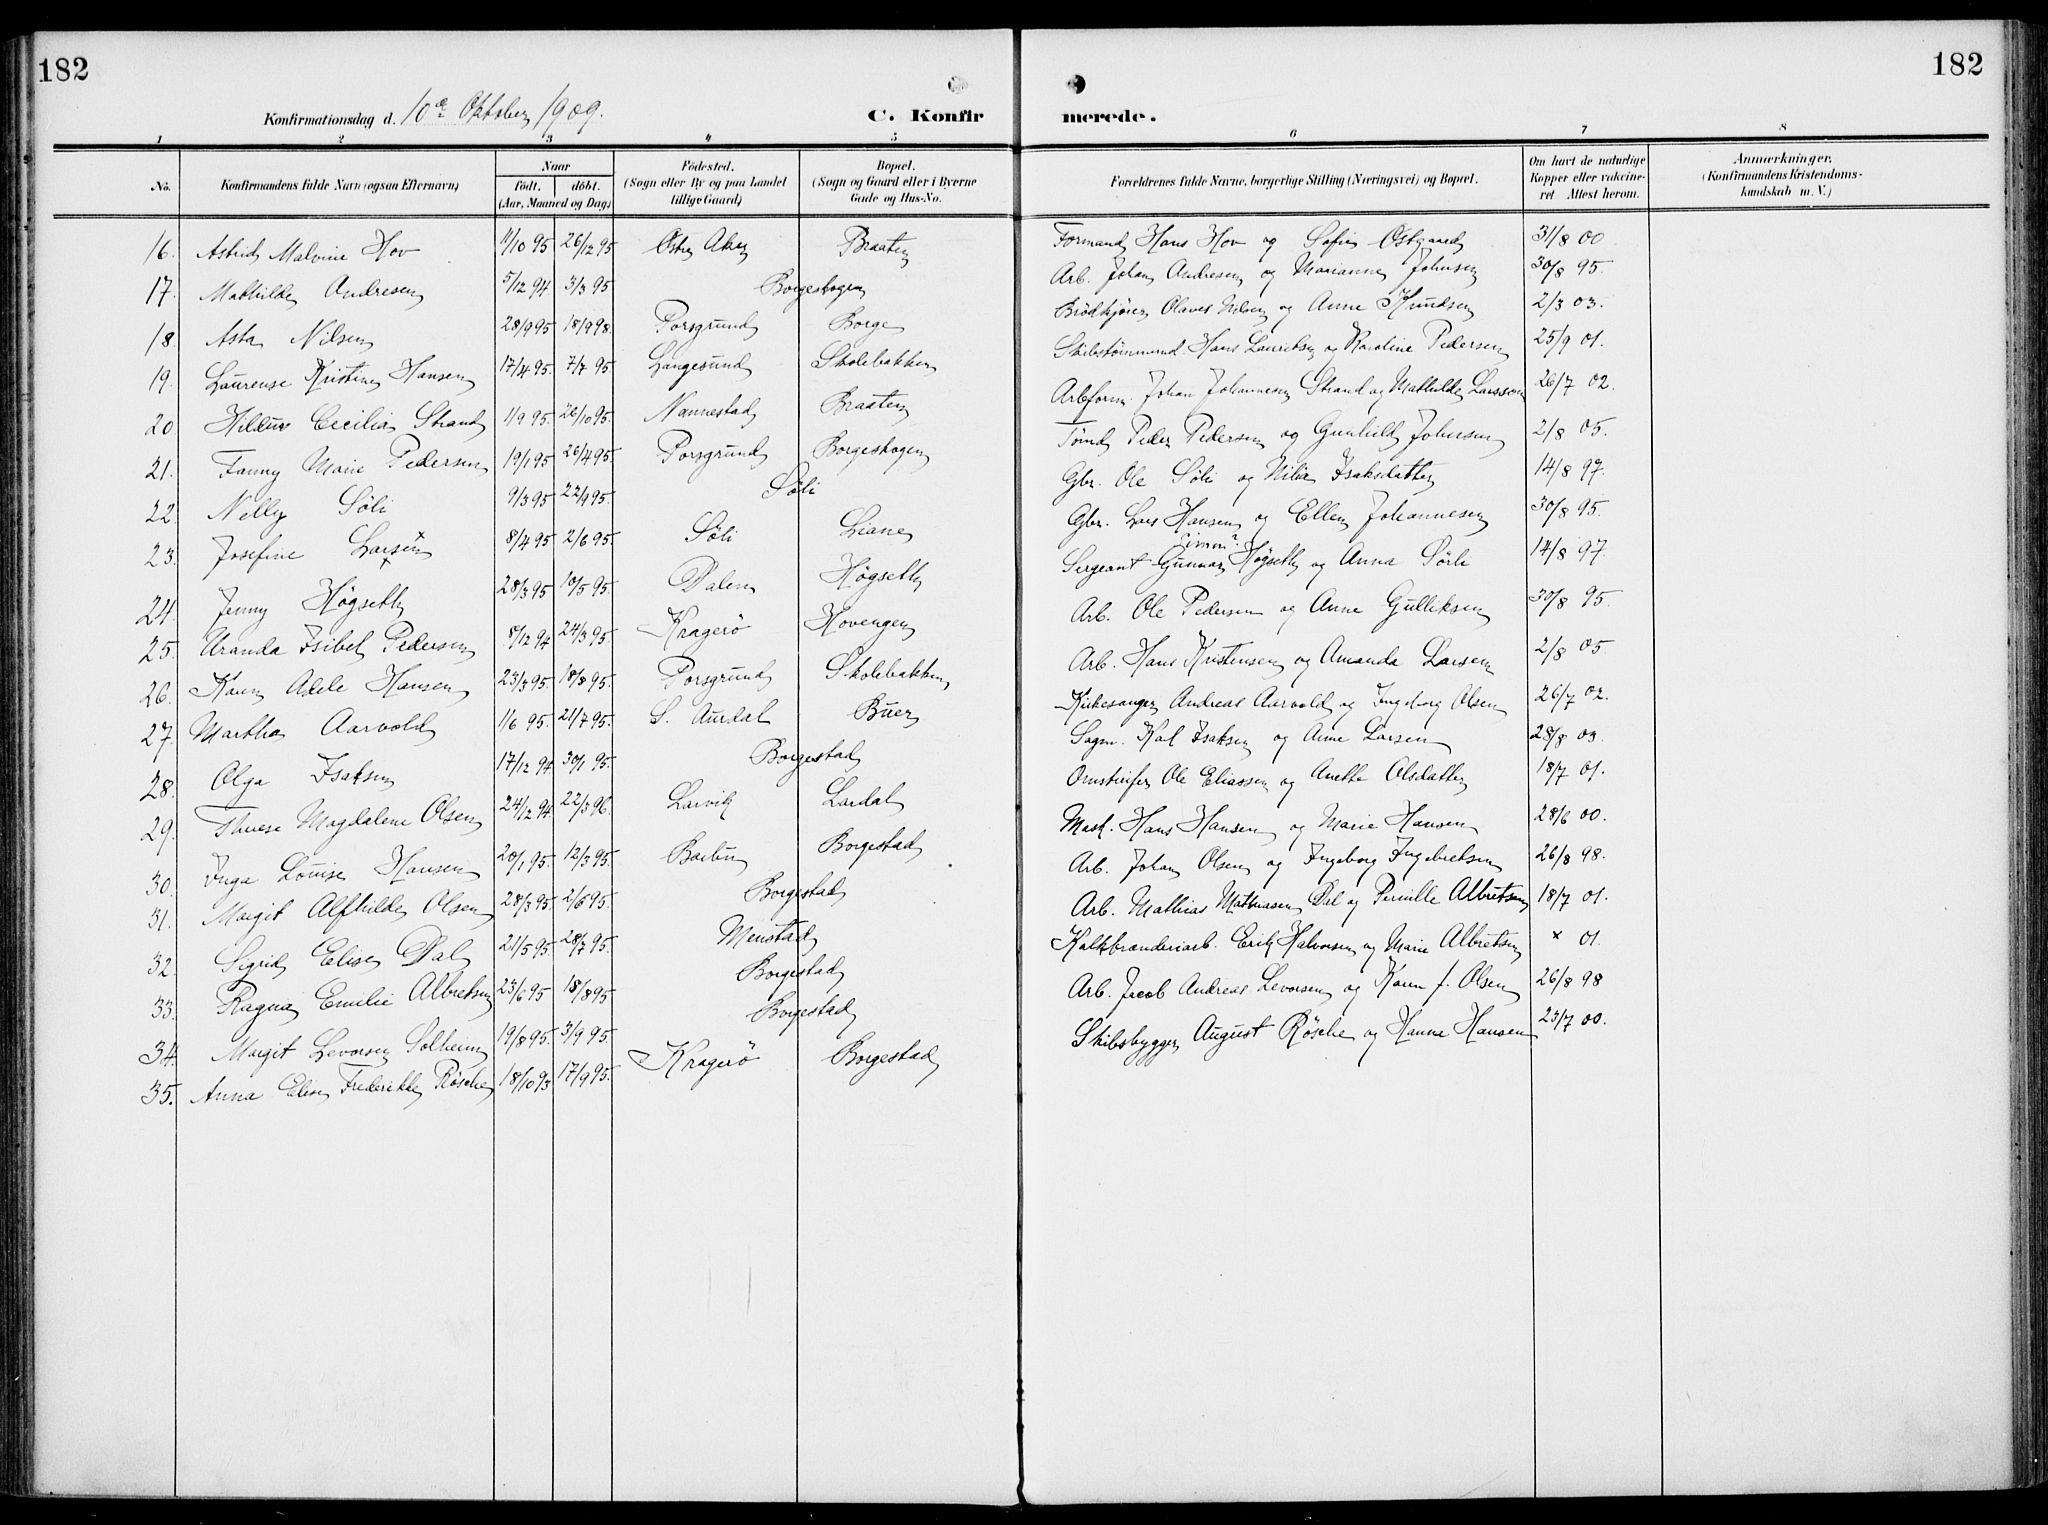 182
182
Konfirmationsdag d. 10de Oktober 1909.
C. Konfirmerede.
1 2 3 4 5 6 7 8
No.
Konfirmandens fulde Navn (ogsaa Efternavn)
Naar
født. døbt.
(Aar, Maaned og Dag)
Fødested.
(Sogn eller By og paa Landet
tillige Gaard)
Bopæl.
(Sogn og Gaard eller i Byerne
Gade og Hus-No.
Forældrenes fulde Navne, borgerlige Stilling (Næringsvei) og Bopæl.
Om havt de naturlige
Kopper eller vakcine-
ret Attest herom.
Anmærkninger.
(Konfirmandens Kristendoms-
kundskab m. V.)
16. Astrid Malvine Hov 11/10 95 26/12 95 Østre Aker Braaten Formand Hans Hov og Sofie Østgaard 31/8 00
17. Mathilde Andresen 5/12 94 3/3 95 Borgeskogen Arb. Johan Andresen og Marianne Johnsen 30/8 95.
18. Asta Nilsen 28/9 95 18/9 98. Porsgrund Borge Brödkjörer Olaves Nilsen og Anne Knudsen 2/3 03.
19. Laurense Kristine Hansen 17/4 95. 7/7 95 Langesund Skolebakken Skibstømmermd. Hans Lauritsen og Karoline Pedersen 25/9 01.
20 Hildur Cecilia Strand 1/9 95. 26/10 95. Nannestad Braaten Arbform. Johan Johannesen Strand og Mathilde Larsson 26/7 02.
21. Fanny Marie Pedersen 19/1 95 26/4 95. Porsgrund Borgeskogen Tømd Peder Pedersen og Gunhild Johnsen 2/8 05.
22 Nelly Söli 9/3 95 22/9 95. Söli Gbr. Ole Söli og Nilia Isaksdatter 14/8 97.
23. Josefine Larsen 8/4 95 2/6 95. Söli Liane Gbr. Lars Hansen og Ellen Johannesen 30/8 95.
Simon?
24. Jenny Högseth 28/3 95 10/5 95. Dalen Högseth Sergeant Gunnar Högseth og Anna Sörli 14/8 97.
25. Uranda Isibel Pedersen 8/12 94 24/3 95 Kragerö Hovengen Arb. Ole Pedersen og Anne Gulliksen 30/8 95.
26. Karen Adele Hansen 23/3 95. 18/8 95. Porsgrund Skolebakken Arb. Hans Kristensen og Amanda Larsen 2/8 05
27. Martha Aarvold 1/6 95. 21/7 95. S. Aurdal Buer Kirkesanger Andreas Aarvold og Ingeborg Olsen 26/7 02.
28. Olga Isaksen 17/12 94 30/1 95. Borgestad Sagm. Karl Isaksen og Anne Larsen 28/8 03.
29. Therese Magdalene Olsen 24/12 94. 22/3 96. Larvik Lardal Ornstirifer Ole Eliassen og Anette Olsdatter 18/7 01.
30. Inga Louise Hansen 20/1 95. 12/3 95. Barbu Borgestad Mask. Hans Hansen og Marie Hansen 28/6 00.
31. Margit Alfhilde Olsen 28/3 95 2/6 95. Borgestad Arb. Johan Olsen og Ingeborg Ingebretsen 26/8 98.
32. Sigrid Elise Dal 21/5 95 28/7 95. Menstad Arb. Mathias Mathiasen Dal og Pernille Albretsen 18/7 01.
33. Ragna Emilie Albretsen 23/6 95 18/8 95 Borgestad Kalkbrænderiarb. Erik Halvorsen og Marie Albretsen × 01.
34. Margit Levorsen Solheim 19/8 95. 3/9 95. Borgestad Arb. Jacob Andreas Levorsen og Karen f. Olsen 26/8 98
35. Anna Elise Frederikke Rösche 18/10 93 17/9 95. Kragerö Borgestad Skibsbygger August Rösche og Hanna Hansen 23/7 00.